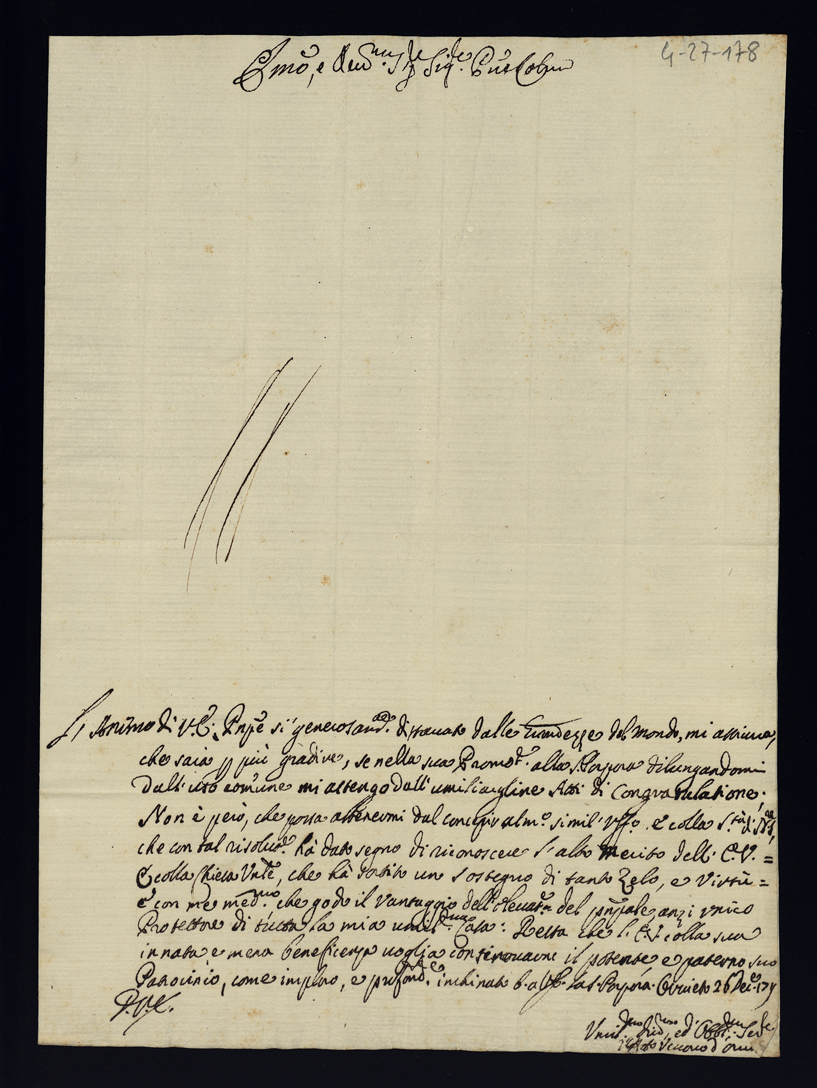 4-27-178
Emo, e Rmo Sig.re Sig.re Pne Colmo
L'Animo di V.E. Pnpe sì generosam. distaccato dalle Grandezze del Mondo, mi assicura,
che saia più gradire, se nella sua Promot.e alla S. Porpora dilungandomi
dall'uso comune mi astengo dall'umiliargline Atti di Congratulatione.
Non è però, che possa astenermi dal concepir almo simil' Uffo. E colla S.tà di
che con tal risoluz.e hà dato segno di riconoscere l'alto Merito dell' E.V. =
E colla Chiesa Unle, che hà sortito un Sostegno di tanto Zelo, e Virtù =
e con me med.mo che godo il Vantaggio dell'elevat.n del pnpale anzi unico
Protettore di tutta la mia umil.ma Casa: Resta che l'E.V. colla sua
innata, e mera beneficenza voglia continovarmi il potente, e paterno suo
Patrocinio, come imploro, e profond.e inchinato b. a V.E. la S. Porpora. Orvieto 26
D.V.E.
Umil.mo ed Obb.mo Ser.e